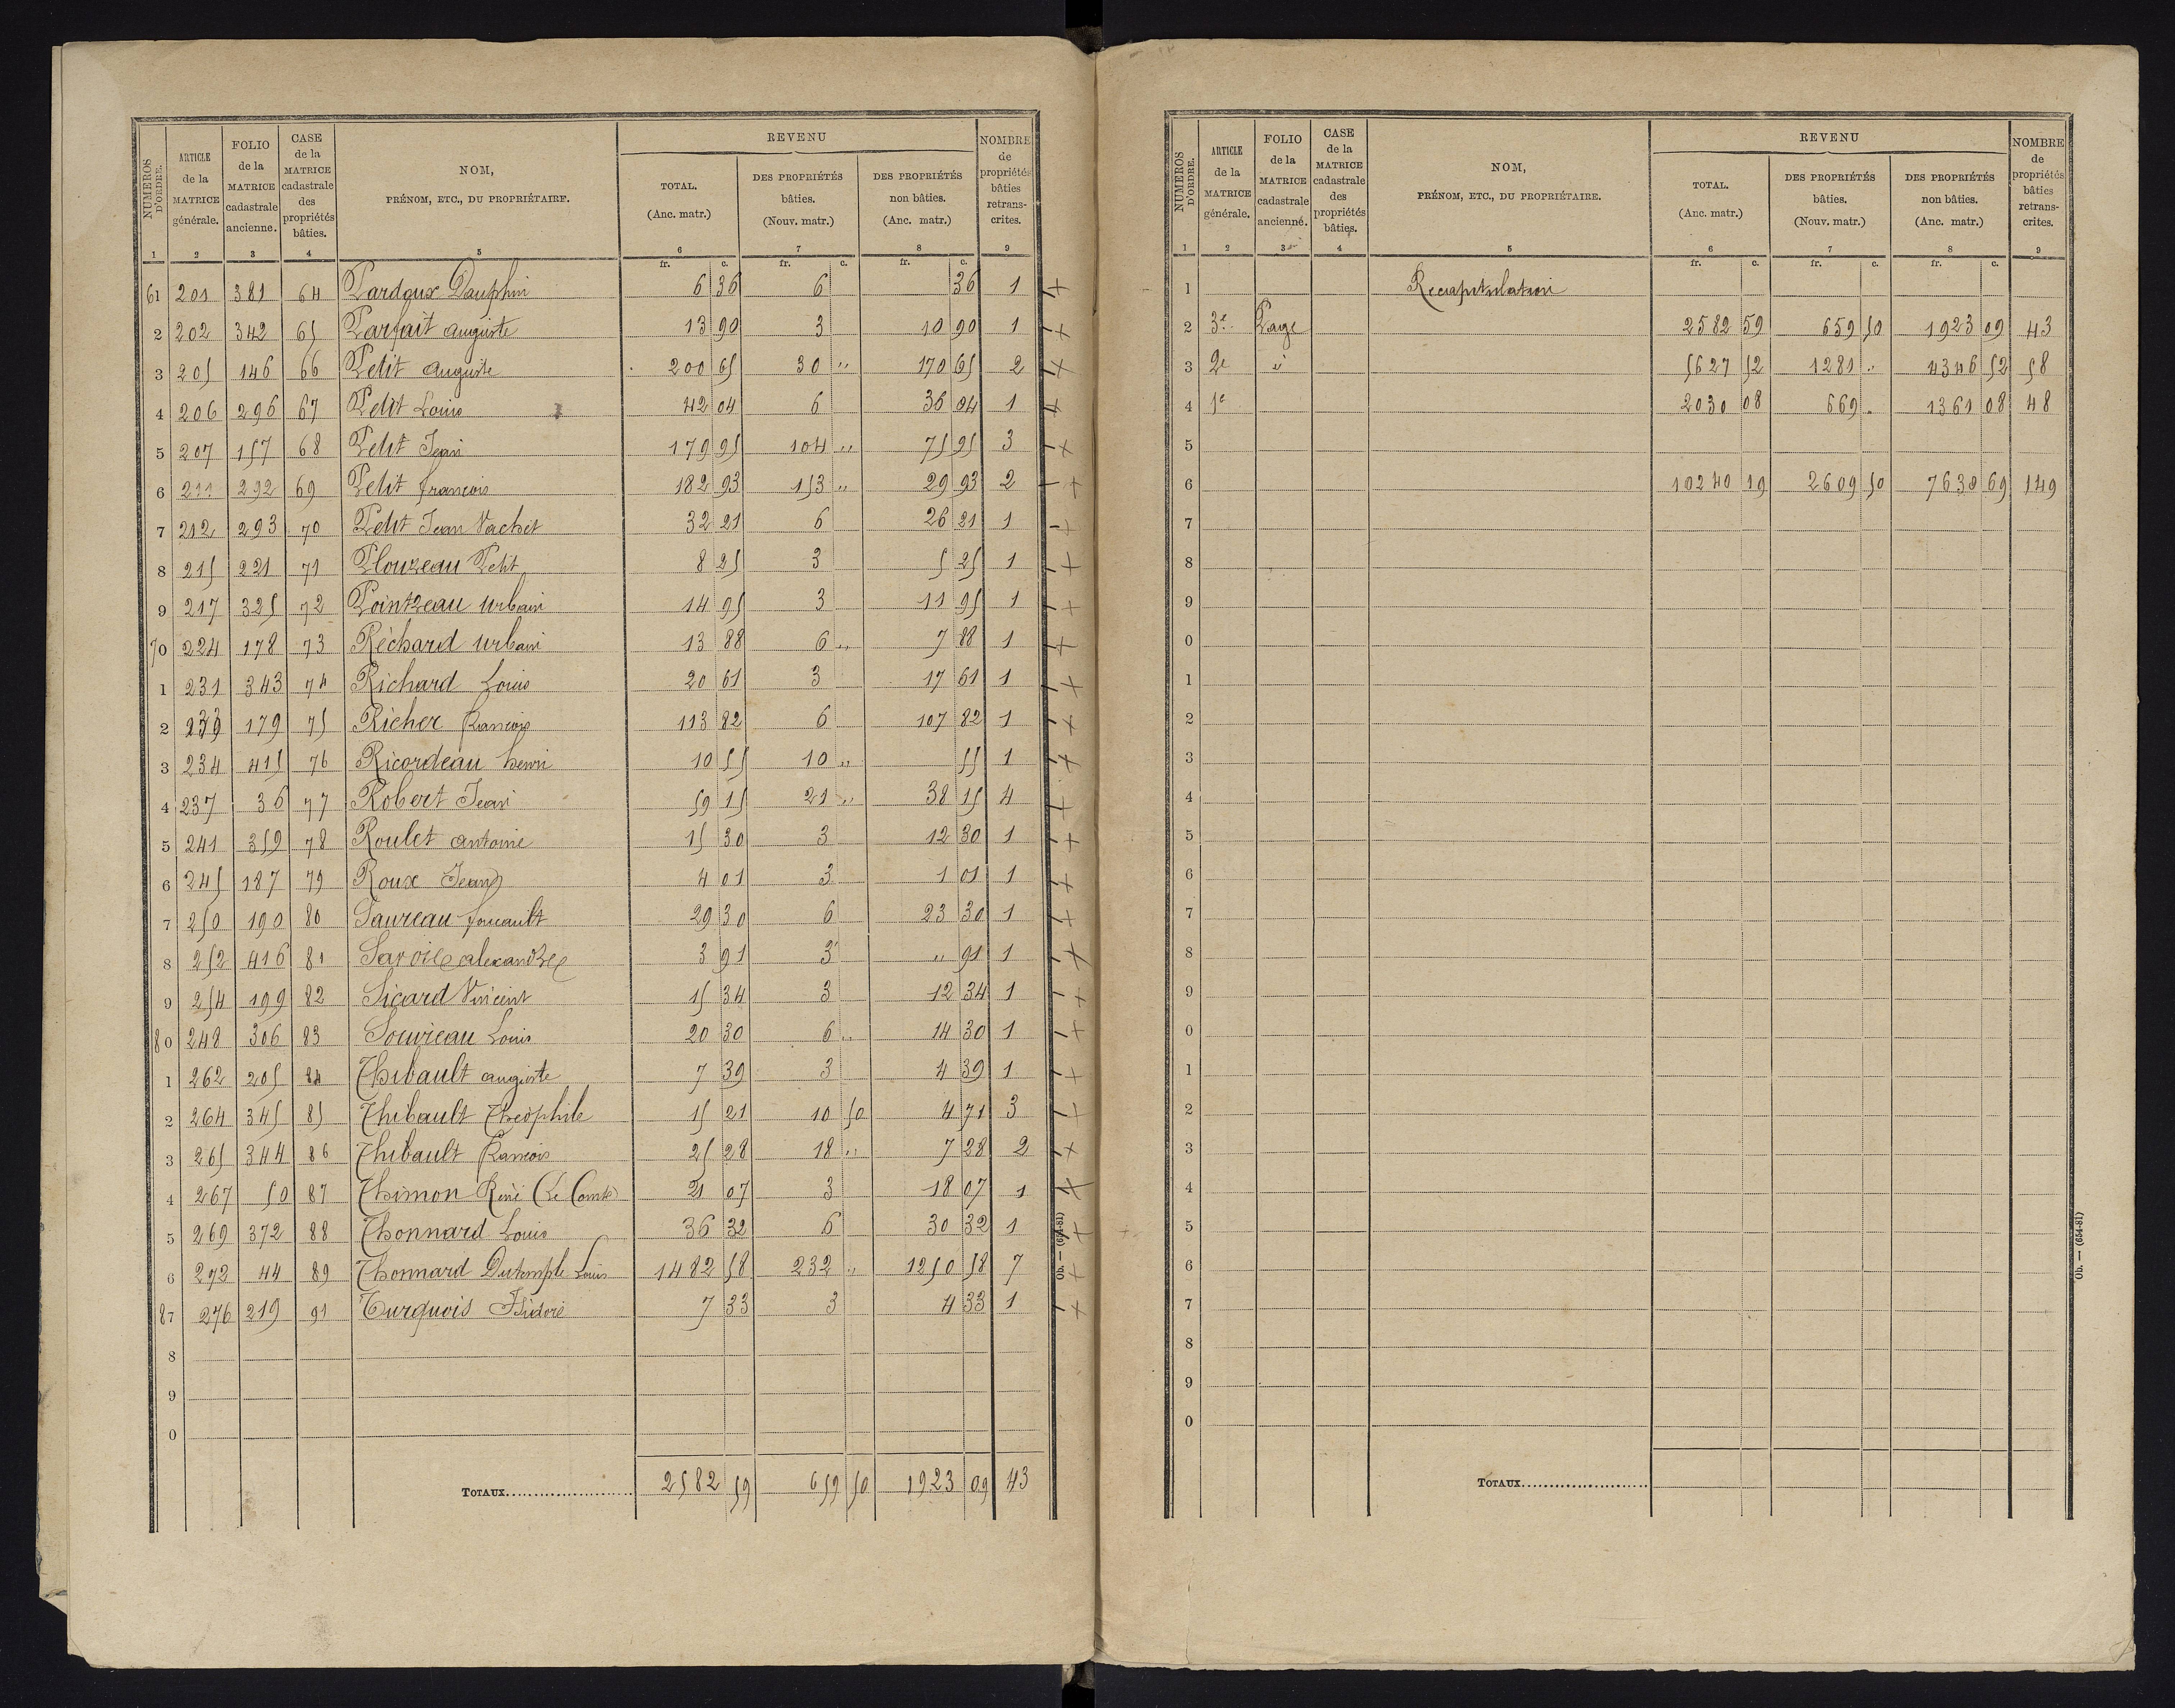 NUMÉROS D'ORDRE. | ARTICLE de la MATRICE générale. | FOLIO de la MATRICE cadastrale ancienne. | CASE de la MATRICE cadastrale des propriétés bâties. | NOM, PRÉNOM, ETC., DU PROPRIÉTAIRE. | REVENU | NOMBRE de propriétés bâties retrans- crites.
TOTAL. (Anc. matr.) | DES PROPRIÉTÉS bâties. (Nouv. matr.) | DES PROPRIÉTÉS non bâties. (Anc. matr.)
1 | 2 | 3 | 4 | 5 | 6 | 7 | 8 | 9
fr. c. | fr. c. | fr. c.
61 | 201 | 381 | 64 | Pardoux Dauphin | 6 36 | 6 | 36 | 1
2 | 202 | 342 | 65 | Parfait auguste | 13 90 | 3 | 10 90 | 1
3 | 205 | 146 | 66 | Petit Auguste | 200 65 | 30 " | 170 65 | 2
4 | 206 | 296 | 67 | Petit Louis | 42 04 | 6 | 36 04 | 1
5 | 207 | 157 | 68 | Petit Jean | 179 95 | 104 " | 75 95 | 3
6 | 211 | 292 | 69 | Petit françois | 182 93 | 153 " | 29 93 | 2
7 | 212 | 293 | 70 | Petit Jean Vachet | 32 21 | 6 | 26 21 | 1
8 | 215 | 221 | 71 | Plouzeau Petit | 8 25 | 3 | 5 25 | 1
9 | 217 | 325 | 72 | Pointzeau Urbain | 14 95 | 3 | 11 95 | 1
70 | 224 | 178 | 73 | Réchard Urbain | 13 88 | 6 " | 7 88 | 1
1 | 231 | 343 | 74 | Richard Louis | 20 61 | 3 | 17 61 | 1
2 | 233 | 179 | 75 | Richer françois | 113 82 | 6 | 107 82 | 1
3 | 234 | 415 | 76 | Ricordeau henri | 10 55 | 10 " | 55 | 1
4 | 237 | 36 | 77 | Robert Jean | 59 15 | 21 " | 38 15 | 4
5 | 241 | 359 | 78 | Roulet antoine | 15 30 | 3 | 12 30 | 1
6 | 245 | 187 | 79 | Roux Jean | 4 01 | 3 | 1 01 | 1
7 | 250 | 190 | 80 | Saureau foucault | 29 30 | 6 | 23 30 | 1
8 | 252 | 416 | 81 | Savoie alexandre | 3 91 | 3 | " 91 | 1
9 | 254 | 199 | 82 | Sicard Vincent | 15 34 | 3 | 12 34 | 1
80 | 248 | 306 | 83 | Souvreau Louis | 20 30 | 6 " | 14 30 | 1
1 | 262 | 205 | 84 | Thibault auguste | 7 39 | 3 | 4 39 | 1
2 | 264 | 345 | 85 | Thibault Théophile | 15 21 | 10 50 | 4 71 | 3
3 | 265 | 344 | 86 | Thibault françois | 25 28 | 18 " | 7 28 | 2
4 | 267 | 50 | 87 | Thimon René (Le Comte) | 21 07 | 3 | 18 07 | 1
5 | 269 | 372 | 88 | Thonnard Louis | 36 32 | 6 | 30 32 | 1
6 | 272 | 44 | 89 | Thonnard Dutemple Louis | 1482 58 | 232 " | 1250 58 | 7
87 | 276 | 219 | 91 | Turquois Isidore | 7 33 | 3 | 4 33 | 1
8
9
0
TOTAUX | 2582 59 | 659 50 | 1923 09 | 43
Ob. — (654-81)
NUMÉROS D'ORDRE. | ARTICLE de la MATRICE générale. | FOLIO de la MATRICE cadastrale ancienne. | CASE de la MATRICE cadastrale des propriétés bâties. | NOM, PRÉNOM, ETC., DU PROPRIÉTAIRE. | REVENU | NOMBRE de propriétés bâties retrans- crites.
TOTAL. (Anc. matr.) | DES PROPRIÉTÉS bâties. (Nouv. matr.) | DES PROPRIÉTÉS non bâties. (Anc. matr.)
1 | 2 | 3 | 4 | 5 | 6 | 7 | 8 | 9
fr. c. | fr. c. | fr. c.
1 | Recapitulation
2 | 3e | Page | 2582 59 | 659 50 | 1923 09 | 43
3 | 2e | d° | 5627 52 | 1281 " | 4346 52 | 58
4 | 1e | 2030 08 | 669 " | 1361 08 | 48
5
6 | 10240 19 | 2609 50 | 7630 69 | 149
7
8
9
0
1
2
3
4
5
6
7
8
9
0
1
2
3
4
5
6
7
8
9
0
TOTAUX
Ob. — (654-81)